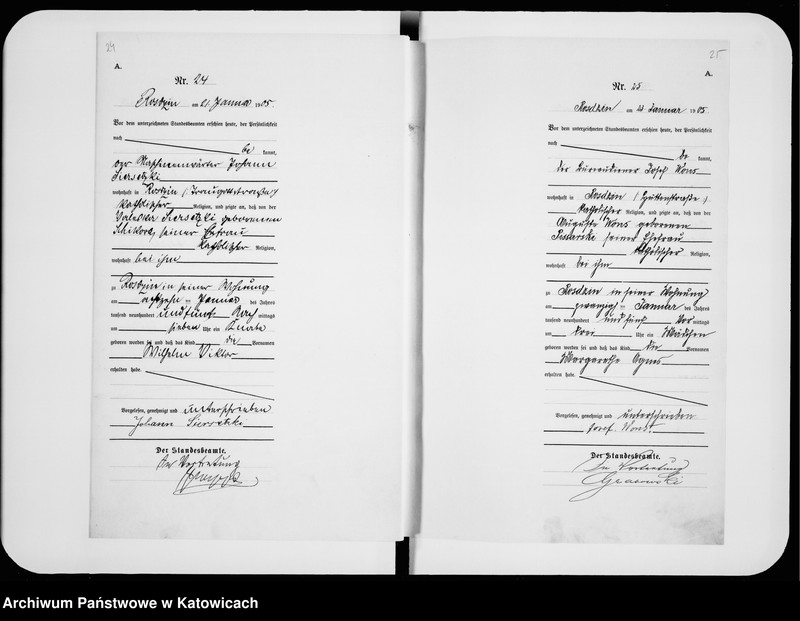 24
A.
Nr. 24
Rosdzin am 21. Januar 1905
Vor dem unterzeichneten Standesbeamten erschien heute, der Persönlichkeit
nach be kannt,
der Johann
wohnhaft in Rosdzin
katholischer Religion, und zeigte an, daß von der
geborenen
seiner Ehefrau
katholischer Religion,
wohnhaft bei ihm
zu Rosdzin in seiner Wohnung
am achtzehn ten Januar des Jahres
tausend neunhundert und fünf Nach mittags
um sieben Uhr ein Knabe
geboren worden sei und daß das Kind die Vornamen
Wilhelm Viktor
erhalten habe.
Vorgelesen, genehmigt und unterschrieben
Johann
Der Standesbeamte.
In Vertretung
25
A.
Nr. 25
Rosdzin am 21 Januar 1905
Vor dem unterzeichneten Standesbeamten erschien heute, der Persönlichkeit
nach be kannt,
der Josef Wons
wohnhaft in Rosdzin (Hüttenstraße)
katholischer Religion, und zeigte an, daß von der
Auguste Wons geborenen
seiner Ehefrau
katholischer Religion,
wohnhaft bei ihm
zu Rosdzin in seiner Wohnung
am zwanzig ten Januar des Jahres
tausend neunhundert und fünf Vor mittags
um drei Uhr ein Mädchen
geboren worden sei und daß das Kind die Vornamen
Margarethe Agnes
erhalten habe.
Vorgelesen, genehmigt und unterschrieben
Josef Wons
Der Standesbeamte.
In Vertretung
Archiwum Państwowe w Katowicach